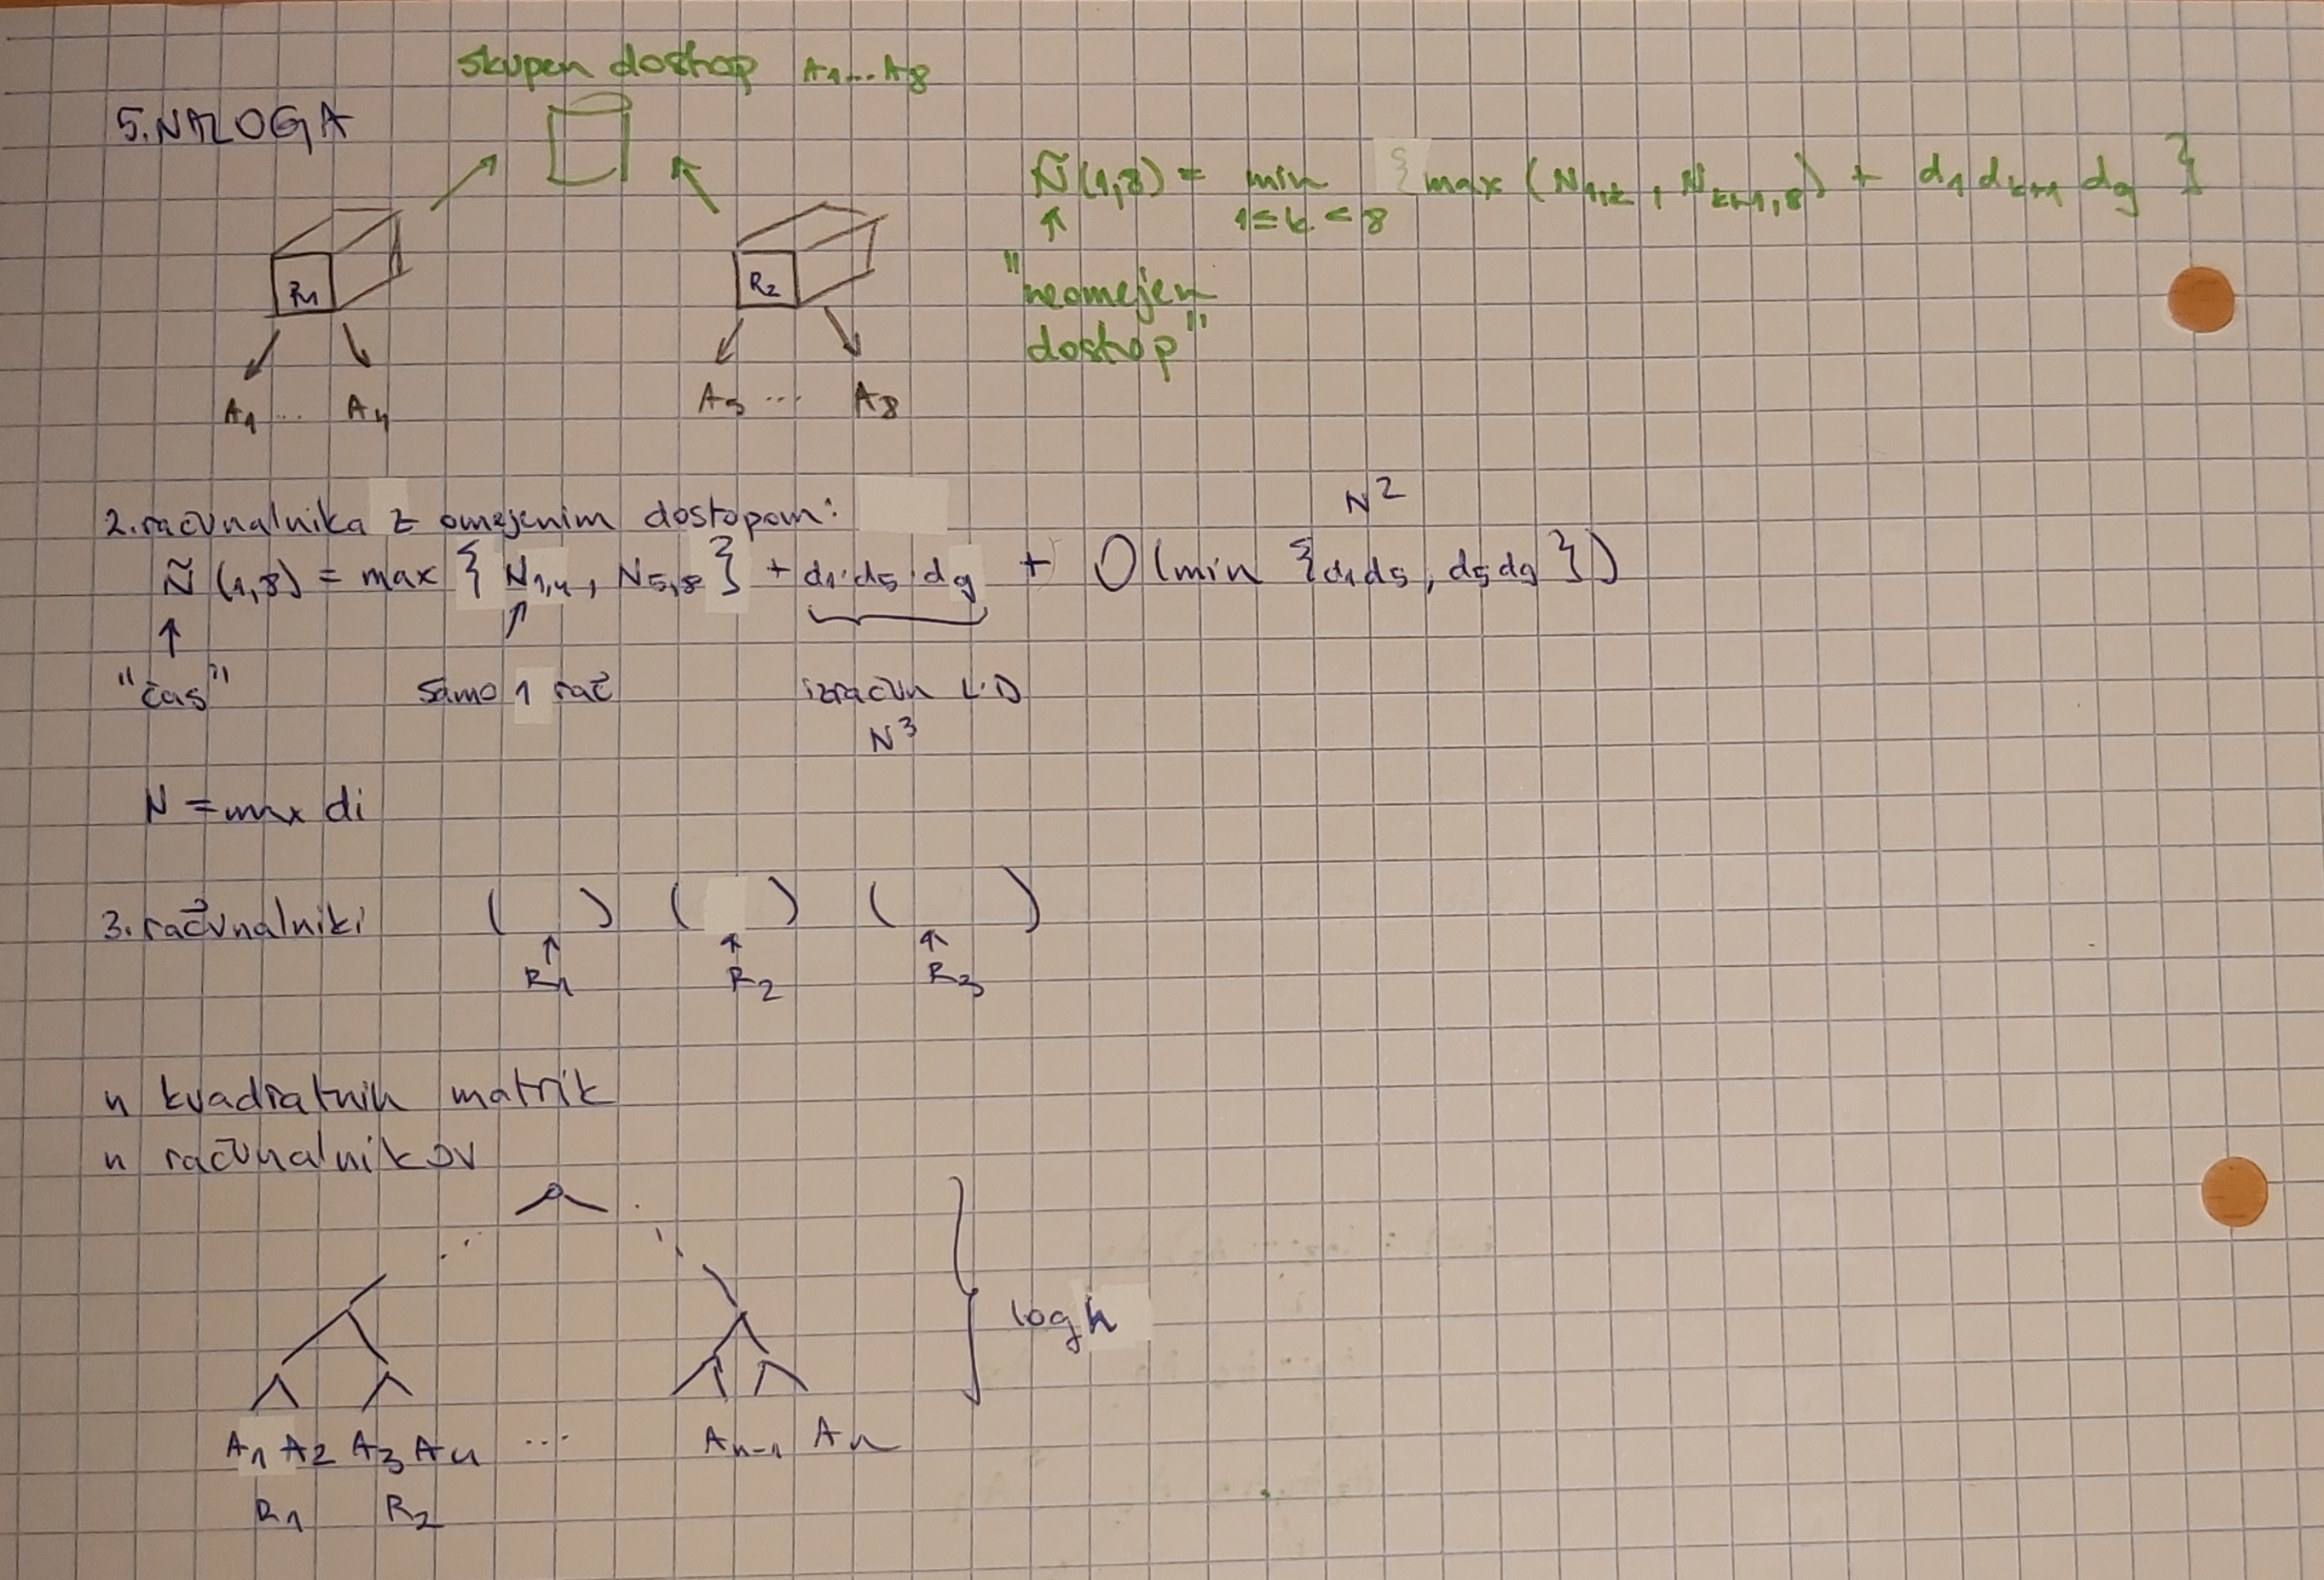 skupen dostop A1...A8
5. NALOGA
Ñ(1,8) = min {max (N1,k , Nk+1,8) + d1 dk+1 d9 }
1≤k<8
"neomejen
dostop"
R1
R2
A1 ... A4
A5 ... A8
N²
2. računalnika z omejenim dostopom:
Ñ (1,8) = max { N1,4 , N5,8 } + d1·d5·d9 + O(min {d1d5 , d5d9 })
"čas"
samo 1 rač
izračun L·D
N³
N = max di
3. računalniki ( ) ( ) ( )
R1 R2 R3
n kvadratnih matrik
n računalnikov
log n
A1 A2 A3 A4 ... An-1 An
R1 R2